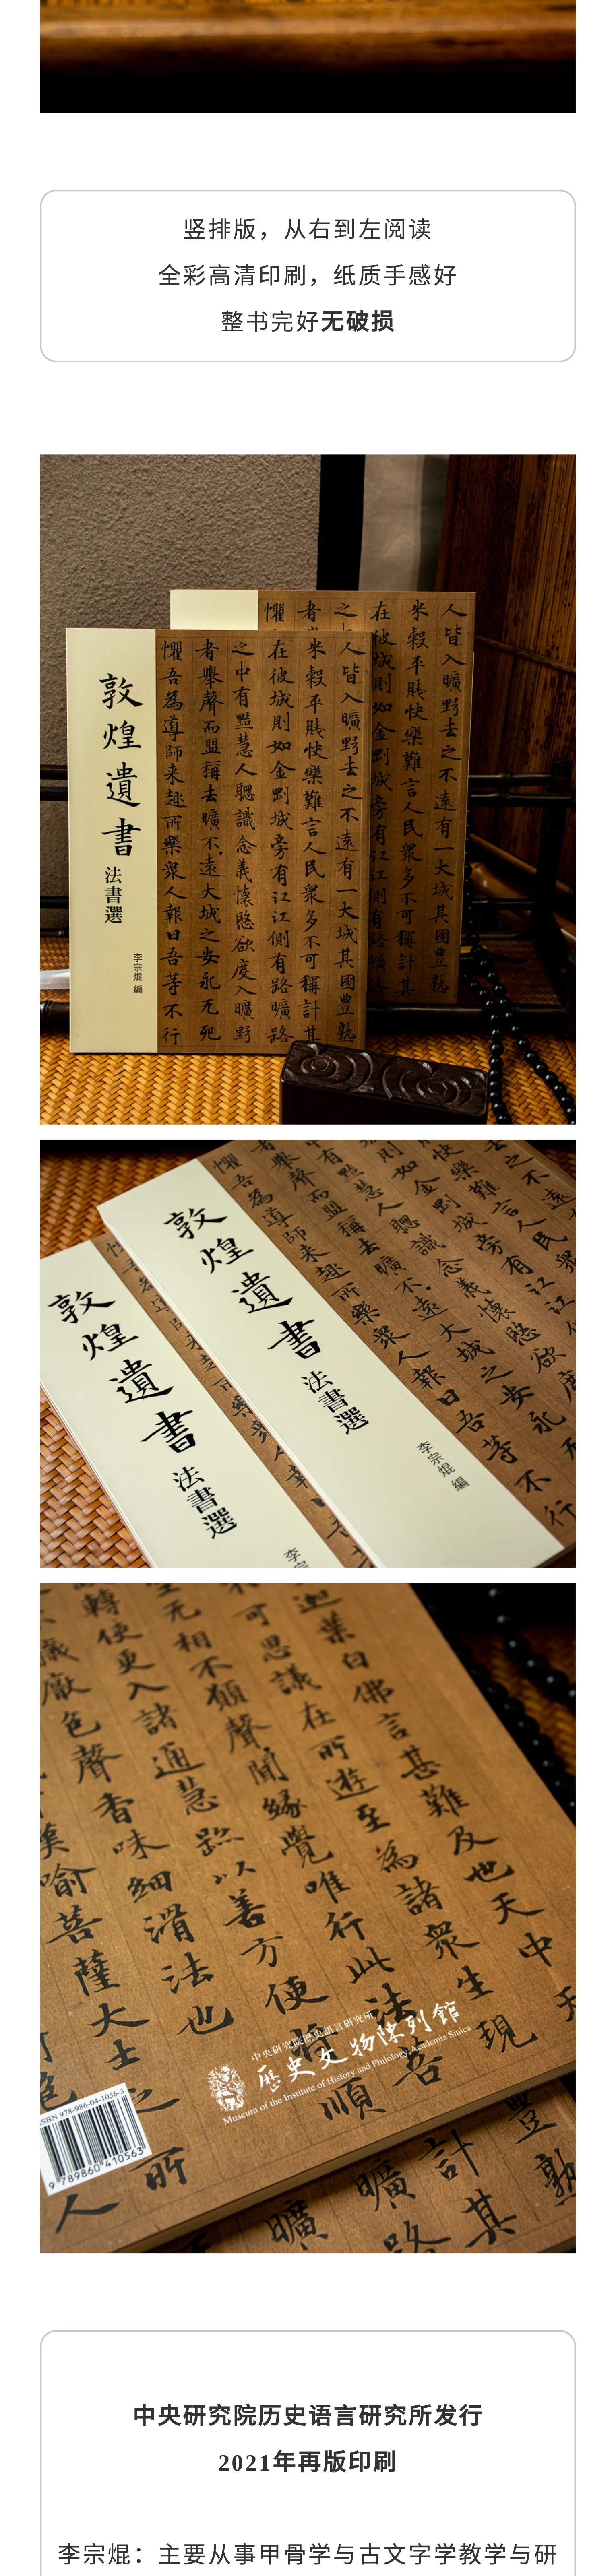 竖排版，从右到左阅读
全彩高清印刷，纸质手感好
整书完好无破损
人皆入曠野去之不遠有一大城其國豊熟
米穀平賎快樂難言人民衆多不可稱計其
在彼城則如金剛城旁有江江側有路曠路
之中有黠慧人聰識念義懷愍欲度入曠野
者舉聲而盟稱去曠不遠大城之安永无死
懼吾為導師来趣所樂衆人報曰吾等不行
敦煌遺書
法書選
李宗焜 編
敦煌遺書
法書選
李宗焜 編
敦煌遺書
法書選
迦葉白佛言甚難及也天中
可思議在所遊至為諸衆生現
无相不願聲聞緣覺唯行此法
轉便更入諸通慧
以善方便
色聲香味細滑法也
喻菩薩大士之所
中央研究院歷史語言研究所
歷史文物陳列館
Museum of the Institute of History and Philology, Academia Sinica
ISBN 978-986-04-1056-3
9 789860 410563
中央研究院历史语言研究所发行
2021年再版印刷
李宗焜：主要从事甲骨学与古文字学教学与研